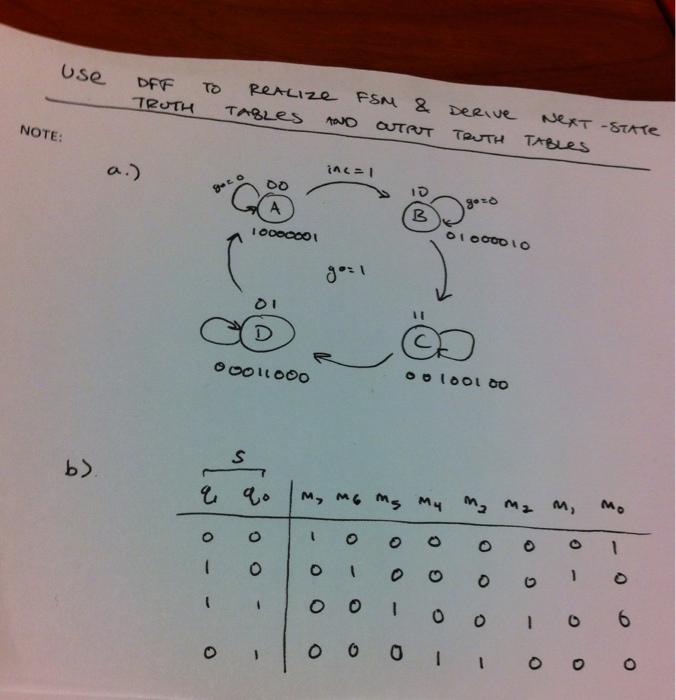 USE DFF TO REALIZE FSM & DERIVE NEXT-STATE
TRUTH TABLES AND OUTPUT TRUTH TABLES
NOTE:
a.)
inc=1
go=0 00
10
go=0
A
B
10000001
01000010
go=1
01
11
D
C
00011000
00100100
b).
S
q1 q0 m7 m6 m5 m4 m3 m2 m1 m0
0 0 1 0 0 0 0 0 0 1
1 0 0 1 0 0 0 0 1 0
1 1 0 0 1 0 0 1 0 0
0 1 0 0 0 1 1 0 0 0